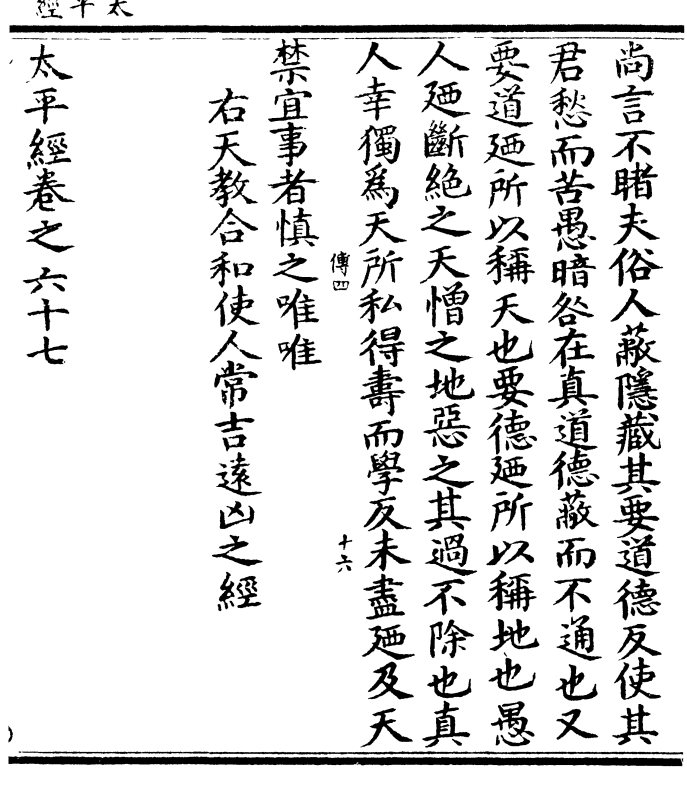 太平經
尚言不睹夫俗人蔽隱藏其要道德反使其
君愁而苦愚暗咎在真道德蔽而不通也又
要道廼所以稱天也要德廼所以稱地也愚
人廼斷絶之天憎之地惡之其過不除也真
人幸獨爲天所私得壽而學反未盡廼及天
傳四
十六
禁宜事者慎之唯唯
右天教合和使人常吉遠凶之經
太平經卷之六十七